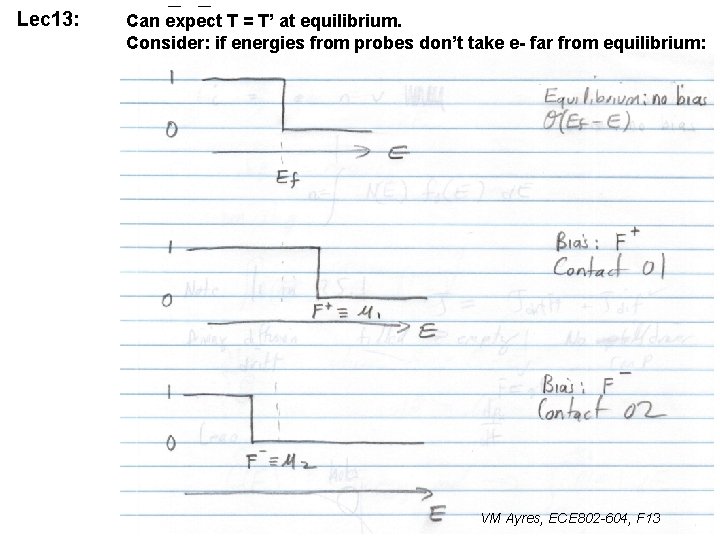 Lec13:
Can expect T = T’ at equilibrium.
Consider: if energies from probes don’t take e- far from equilibrium:
1
0
E
Ef
Equilibrium: no bias
ϑ(Ef - E)
1
0
F+ ≡ μ1
E
Bias: F+
Contact 01
1
0
F- ≡ μ2
E
Bias: F-
Contact 02
VM Ayres, ECE802-604, F13